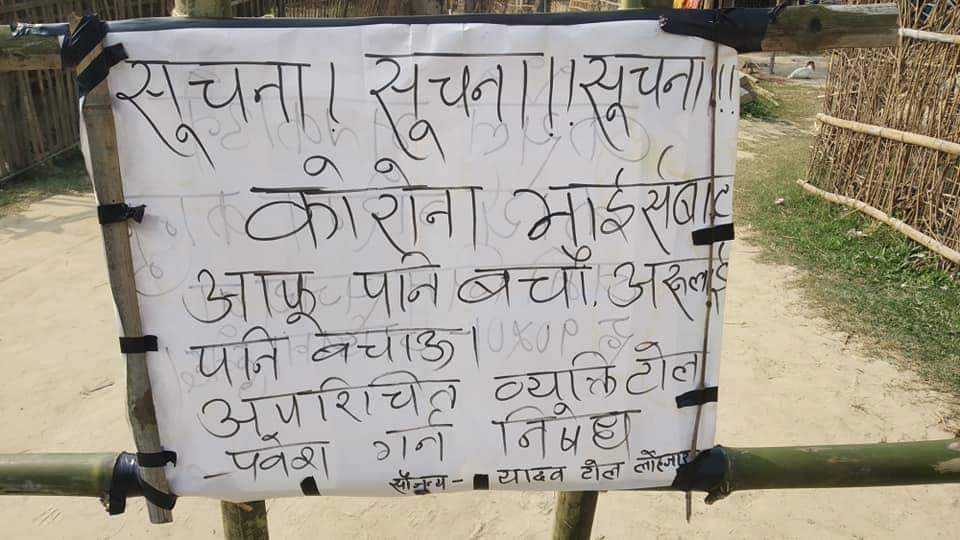 सूचना! सूचना!! सूचना!!!
कोरोना भाईर्सबाट
आफू पनि बचौं. अरूलाई
पनि बचाऊ।
अपरिचित व्यक्ति टोल
प्रवेश गर्न निषेध
सौजन्य - यादव टोल